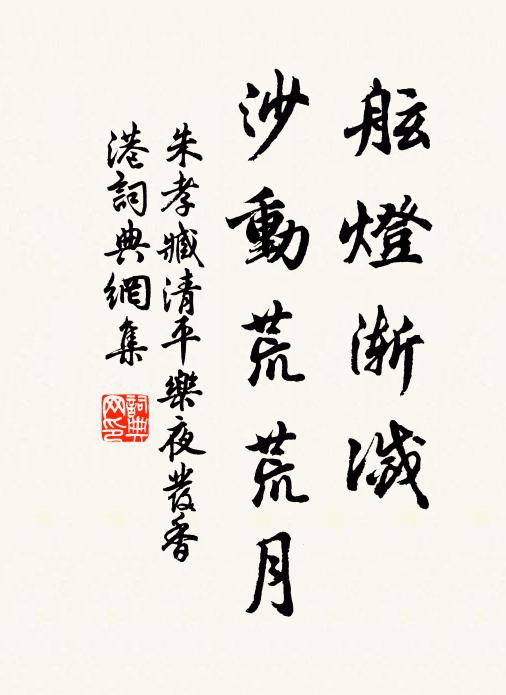 舷燈漸滅
沙動荒荒月
朱孝臧清平樂夜發香
港詞典網集
詞典
网印